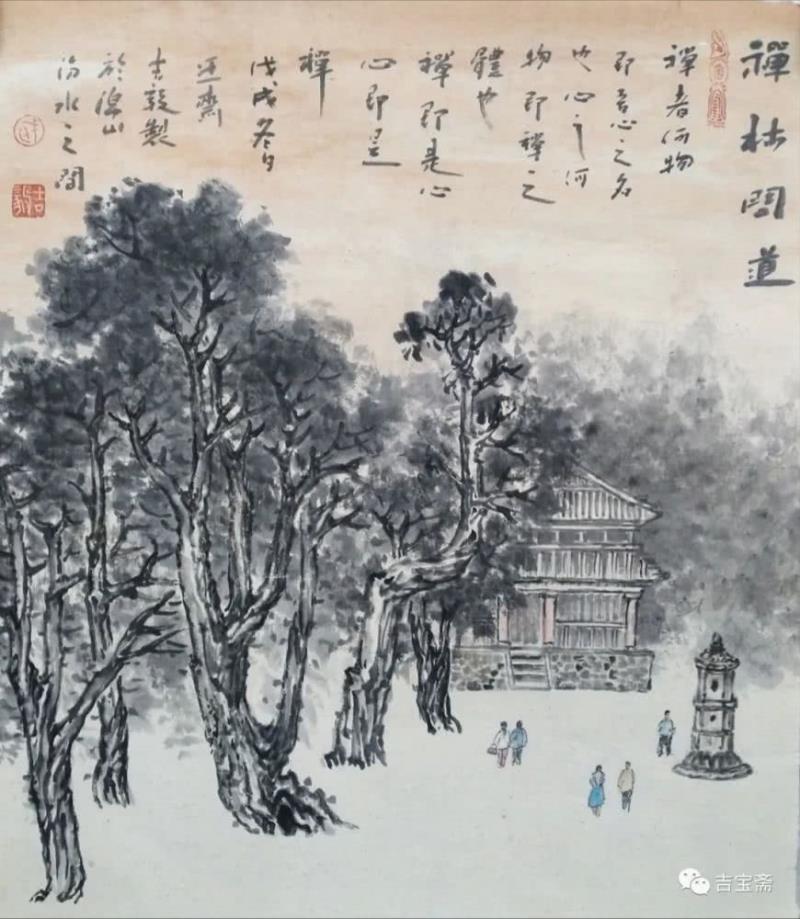 禪林問道
禪者何物
即吾心之名
也心之何
物即禪之
體也
禪即是心
心即是
禪
戊戌冬日
齋
吉毅製
於山
汾水之間
吉毅
吉宝斋